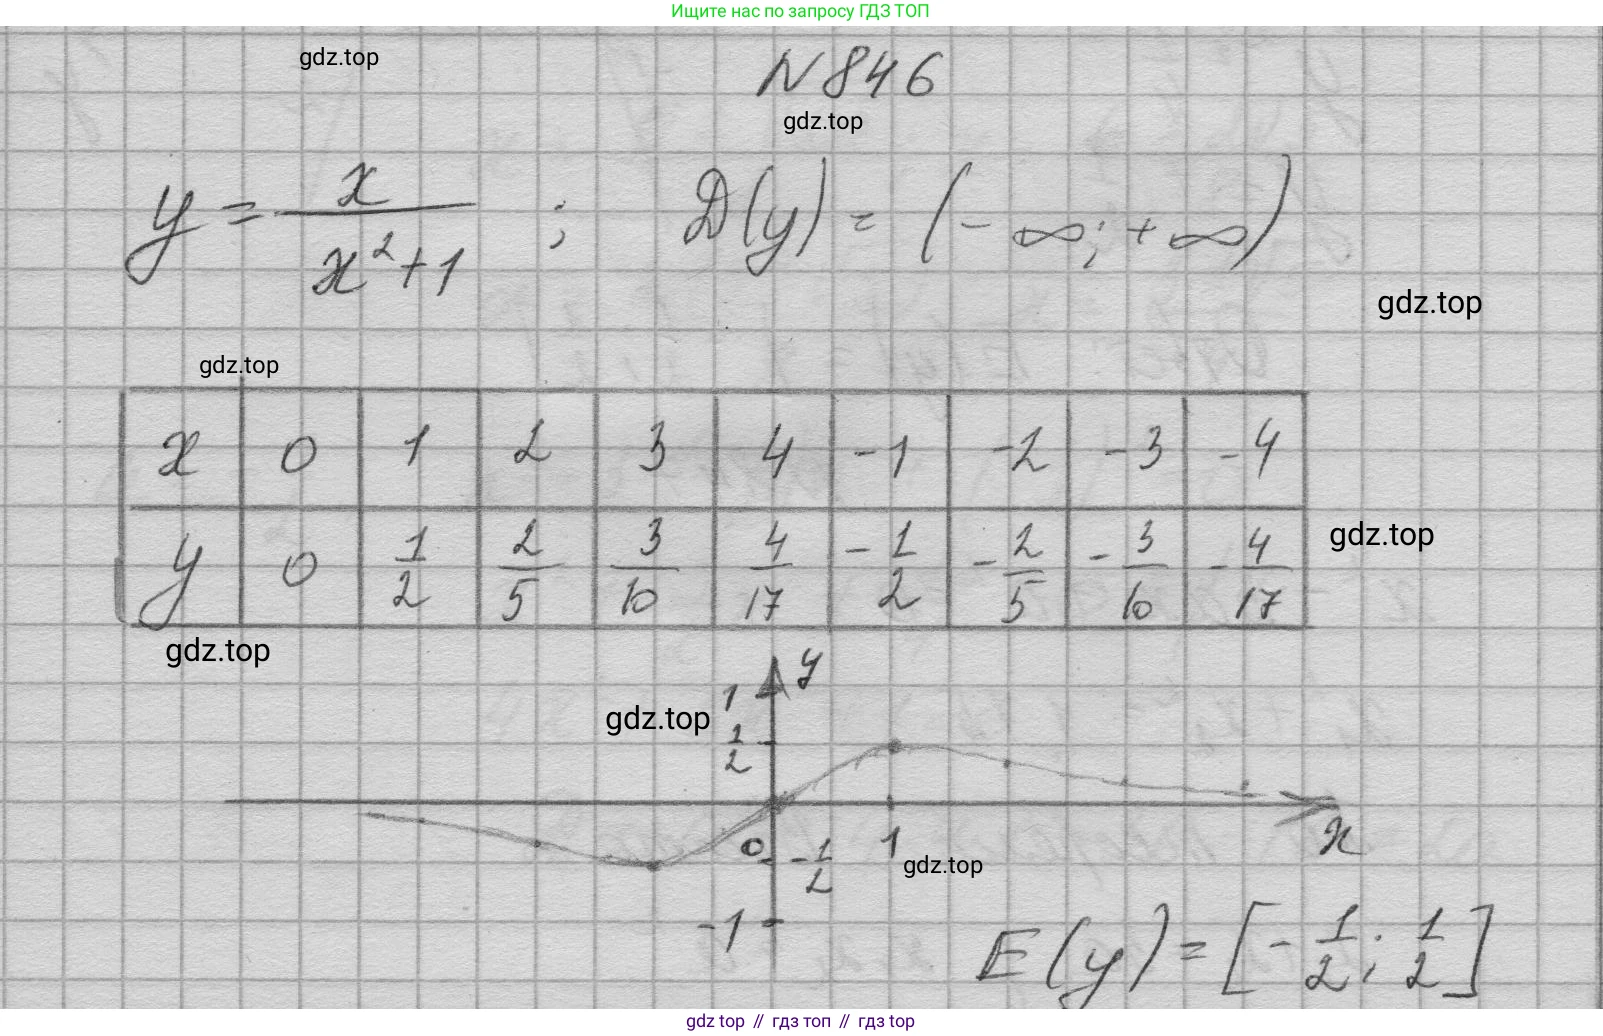 Ищите нас по запросу ГДЗ ТОП
gdz.top
N 846
gdz.top
y = x / (x² + 1) ; D(y) = (-∞; +∞)
gdz.top
gdz.top
x 0 1 2 3 4 -1 -2 -3 -4
y 0 1/2 2/5 3/10 4/17 -1/2 -2/5 -3/10 -4/17
gdz.top
gdz.top
y
1
gdz.top
1/2
0
-1/2
1
x
gdz.top
-1
E(y) = [-1/2; 1/2]
gdz top // гдз топ // гдз top